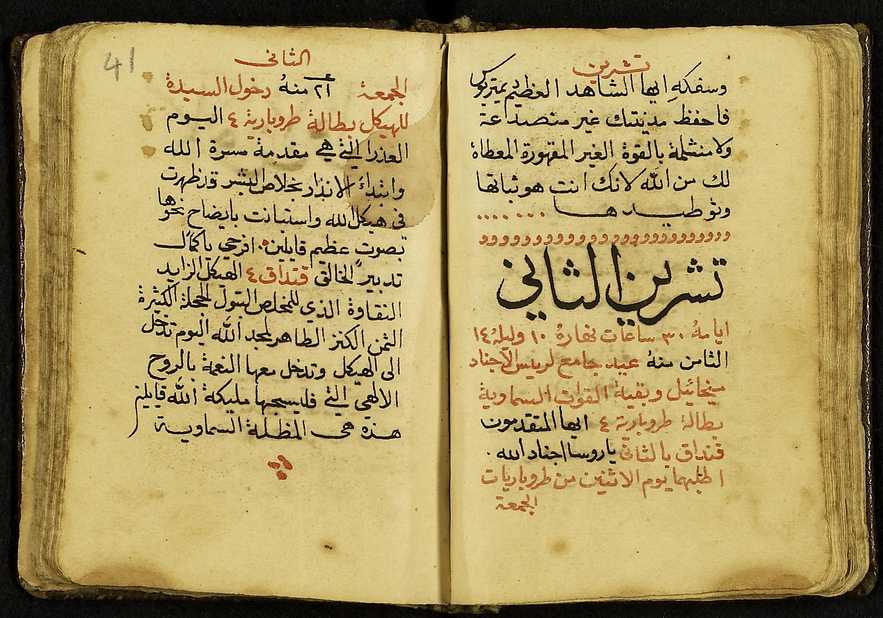 تشرين
وسفكهِ ايها الشاهد العظيم ديمتريوس
فاحفظ مدينتك غير متصداعة
ولا منثلمة بالقوة الغير المقهورة المعطاة
لك من الله لانك انت هو ثباتها
وتوطيدها
تشرين الثاني
ايامهُ ٣٠ ساعات نهارهُ ١٠ وليلهُ ١٤
الثامن منهُ عيد جامع لرييس الاجناد
ميخائيل وبقية القوات السماوية
بطالة طروبارية ٤ ايها المتقدمون
قنداق بالثاني ياروسا اجناد الله.
اطلبهما يوم الاثنين من طروباريات
الجمعة
41
الثاني
الجمعة ٢١ منهُ دخول السيدة
للهيكل بطالة طروبارية ٤ اليوم
العذرا التي هي مقدمة مسرة الله
وابتداء الانذار بخلاص البشر قد ظهرت
في هيكل الله واستبانت بايضاح نحوها
بصوت عظيم قايلين. افرحي ياكمال
تدبير الخالق قنداق ٤ الهيكل الزايد
النقاوة الذي للمخلص البتول الحجلة الكثيرة
الثمن الكنز الطاهر لمجد الله اليوم تدخل
الى الهيكل وتدخل معها النعمة بالروح
الالهي التي فليسبحها مليكة الله قايلين
هذه هي المظلة السماوية